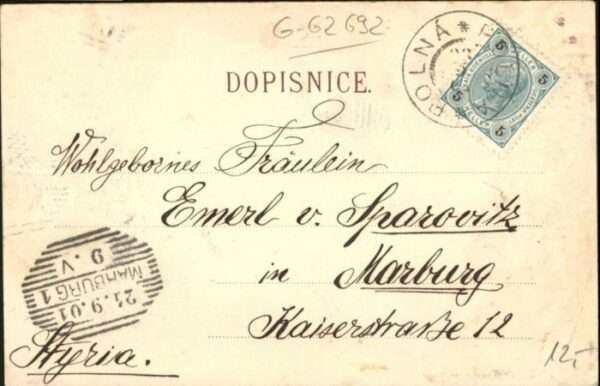 G-62692
DOPISNICE.
POLNÁ *
5 5 5 5
Wohlgebornes Fräulein
Emerl v. Sparovitz
in Marburg
Kaiserstraße 12
MARBURG 1
21.9.01
9.V
Styria.
12,-